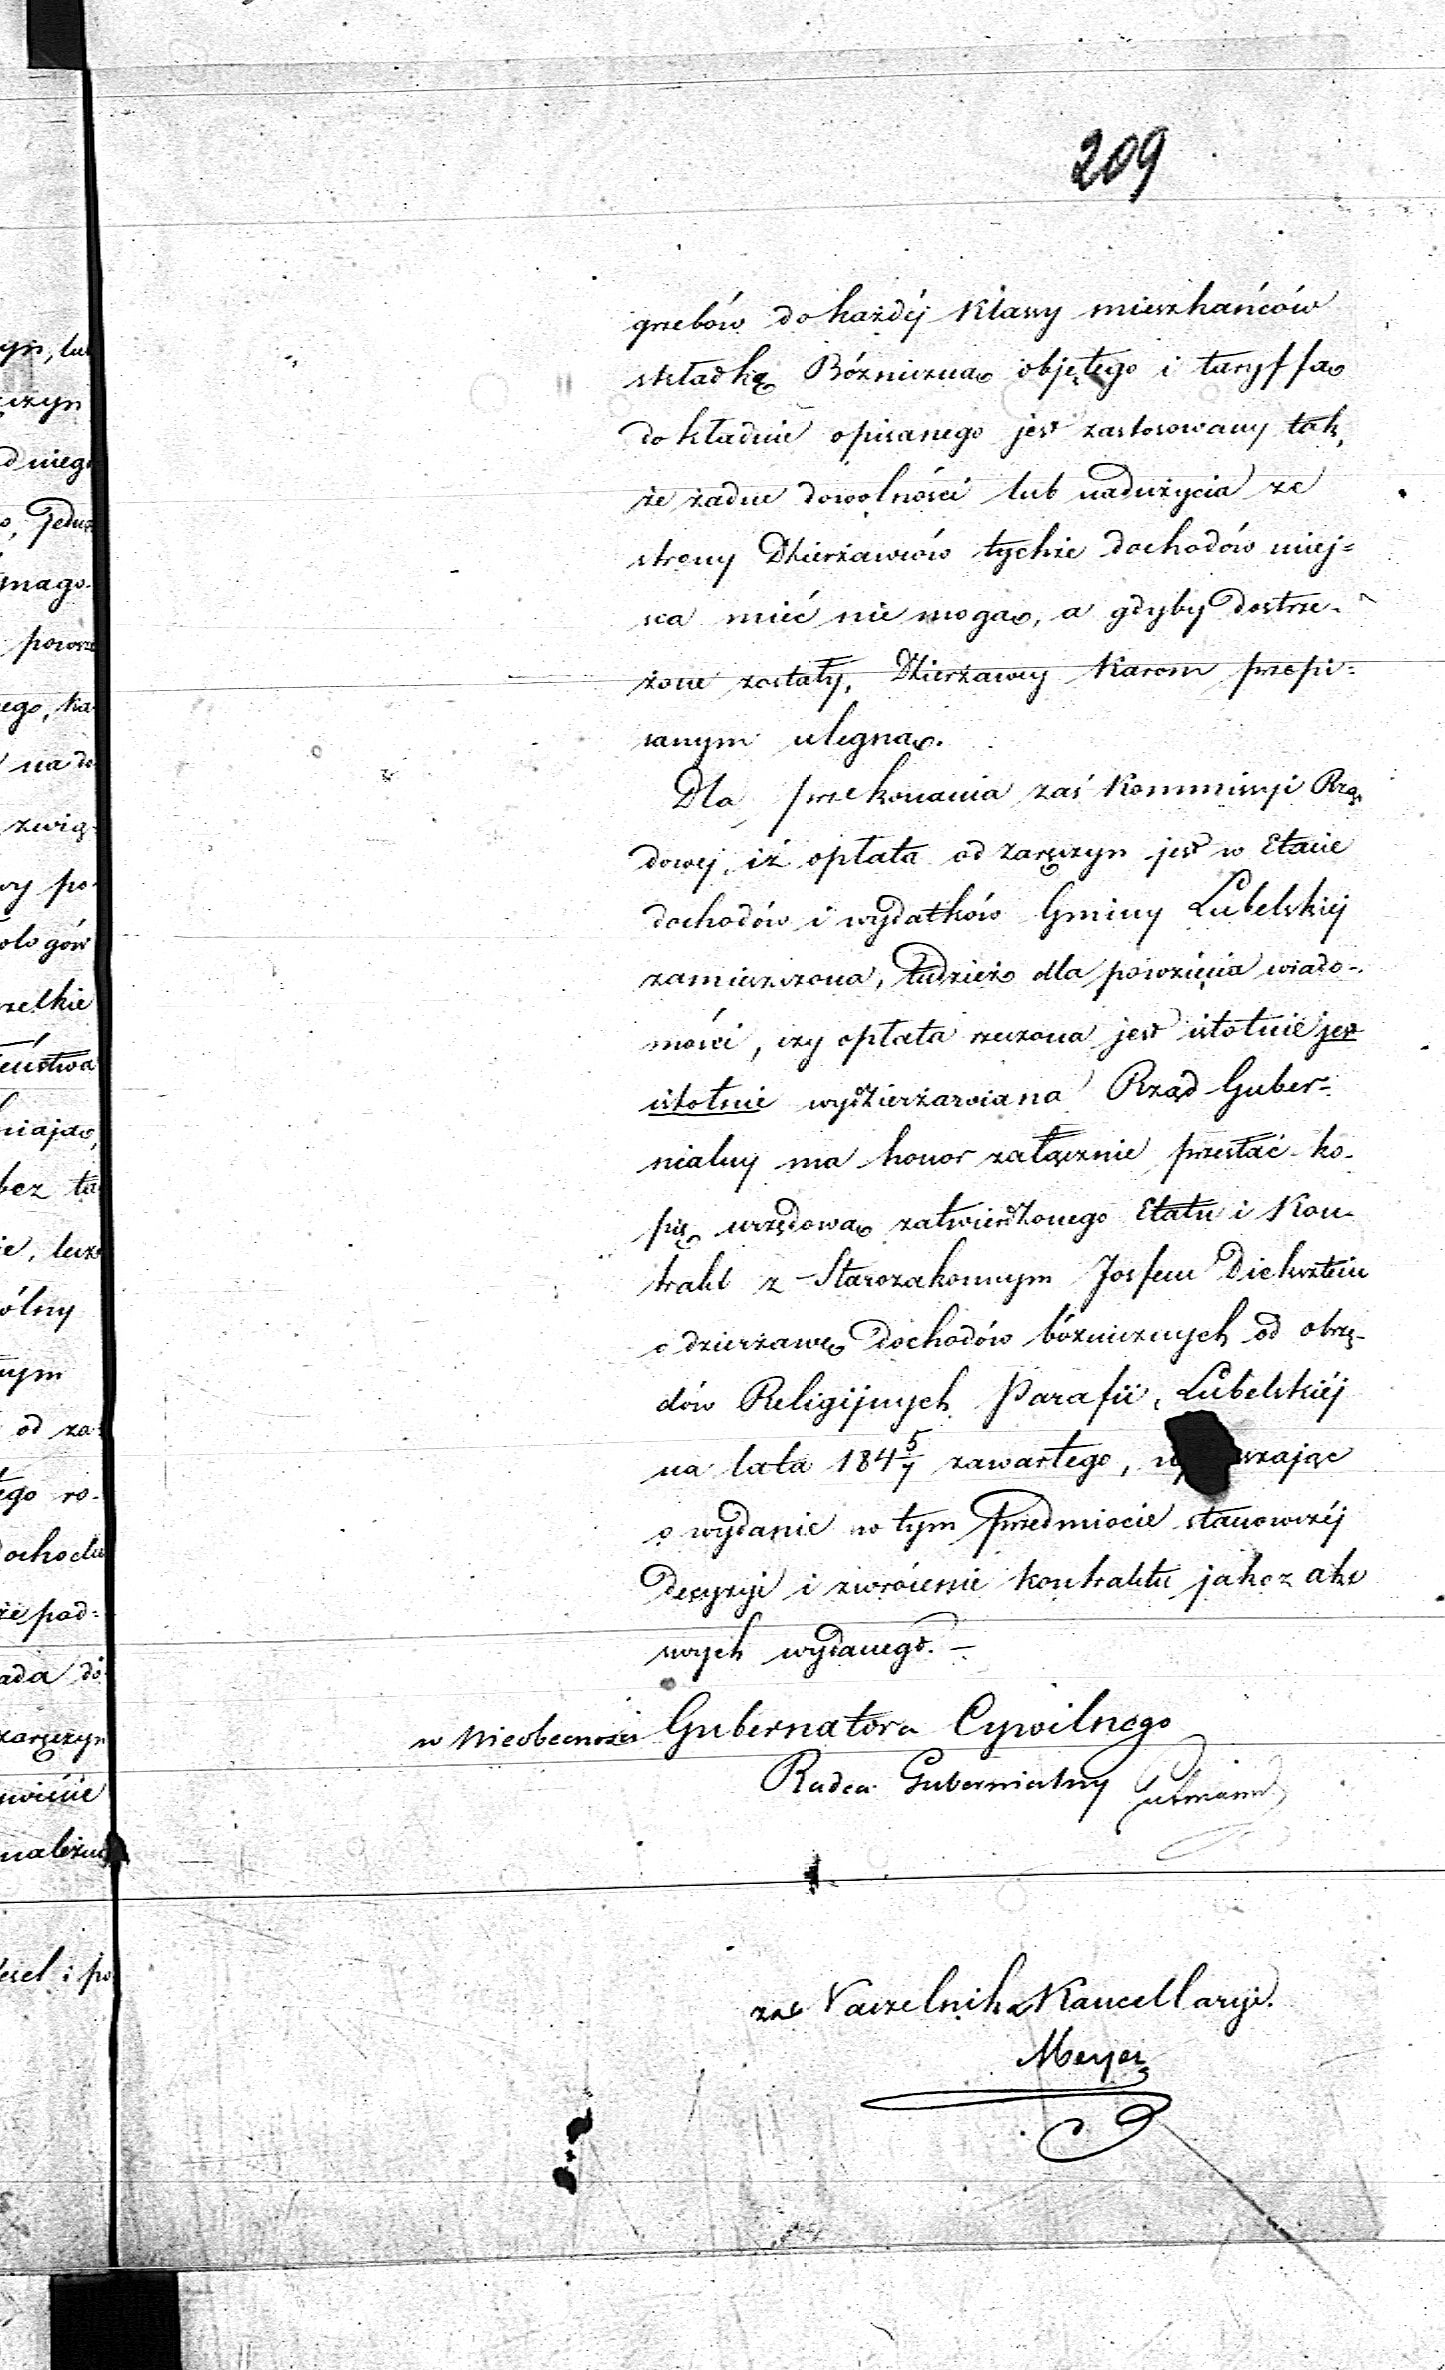 209
grzebów do każdéj Klassy mieszkańców
składką Bóżniczną objętego i taryffą
dokładnie opisanego jest zastosowany tak,
że żadne dowolności lub nadużycia ze
strony Dzierżawców tychże dochodów miej=
sca mieć nie mogą, a gdyby dostrze-
żone zostały, Dzierżawcy Karom przepi=
sanym ulegną.
Dla przekonania zaś Kommissyi Rzą
dowej, iż opłata od zaręczyn jest w Etacie
dochodów i wydatków Gminy Lubelskiéj
zamieszczona, tudzież dla powzięcia wiado-
mości, czy opłata rzeczona jest istotnie jest
istotnie wydzierżawiana Rząd Guber=
nialny ma honor załącznie przesłać ko-
pię urzędową zatwierdzonego Etatu i Kon-
trakt z Starozakonnym Josfem Dichsztein
o dzierżawę dochodów bóżnicznych od obrzę-
dów Religijnych Parafii Lubelskiéj
na lata 184 5/7 zawartego,
o wydanie w tym przedmiocie stanowczéj
Decyzyi i zwrócenie kontraktu jako z akt
wydanego. –
w Nieobecności Gubernatora Cywilnego
Radca Gubernialny
za Naczelnika Kancellaryi.
Meyer
yn, lub
czyn
d nieg
powrze
ego, ka-
na do
zwią-
wy po-
ologów
szelkie
eństwa
niają,
bez ta
ólny
nym
od za-
ego ro-
dochodu
że pod=
ada do
zaręczyn
należn